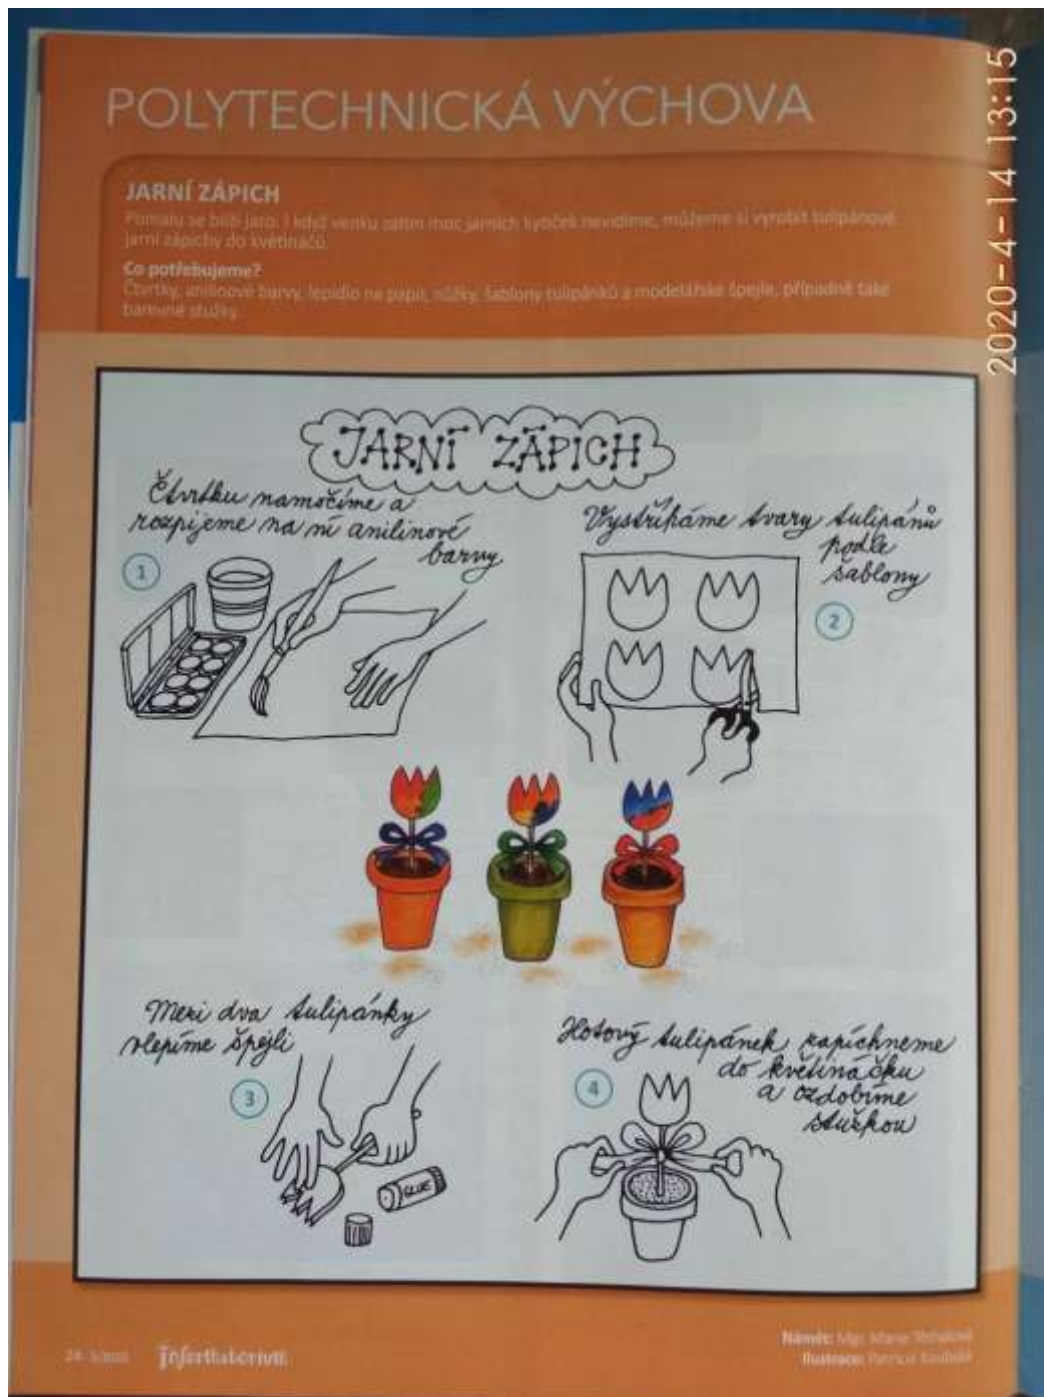 POLYTECHNICKÁ VÝCHOVA
2020-4-14 13:15
JARNÍ ZÁPICH
Pomalu se blíží jaro. I když venku zatím moc jarních kytiček nevidíme, můžeme si vyrobit tulipánové
jarní zápichy do květináčů.
Co potřebujeme?
Čtvrtky, anilinové barvy, lepidlo na papír, nůžky, šablony tulipánků a modelářské špejle, případně také
barevné stužky.
JARNÍ ZÁPICH
Čtvrtku namočíme a
rozpijeme na ní anilinové
barvy
1
Vystříháme tvary tulipánů
podle
šablony
2
Mezi dva tulipánky
vlepíme špejli
3
GLUE
Hotový tulipánek zapíchneme
do květináčku
a ozdobíme
stužkou
4
Informatorium
Námět: Mgr. Marie
Ilustrace: Patricie